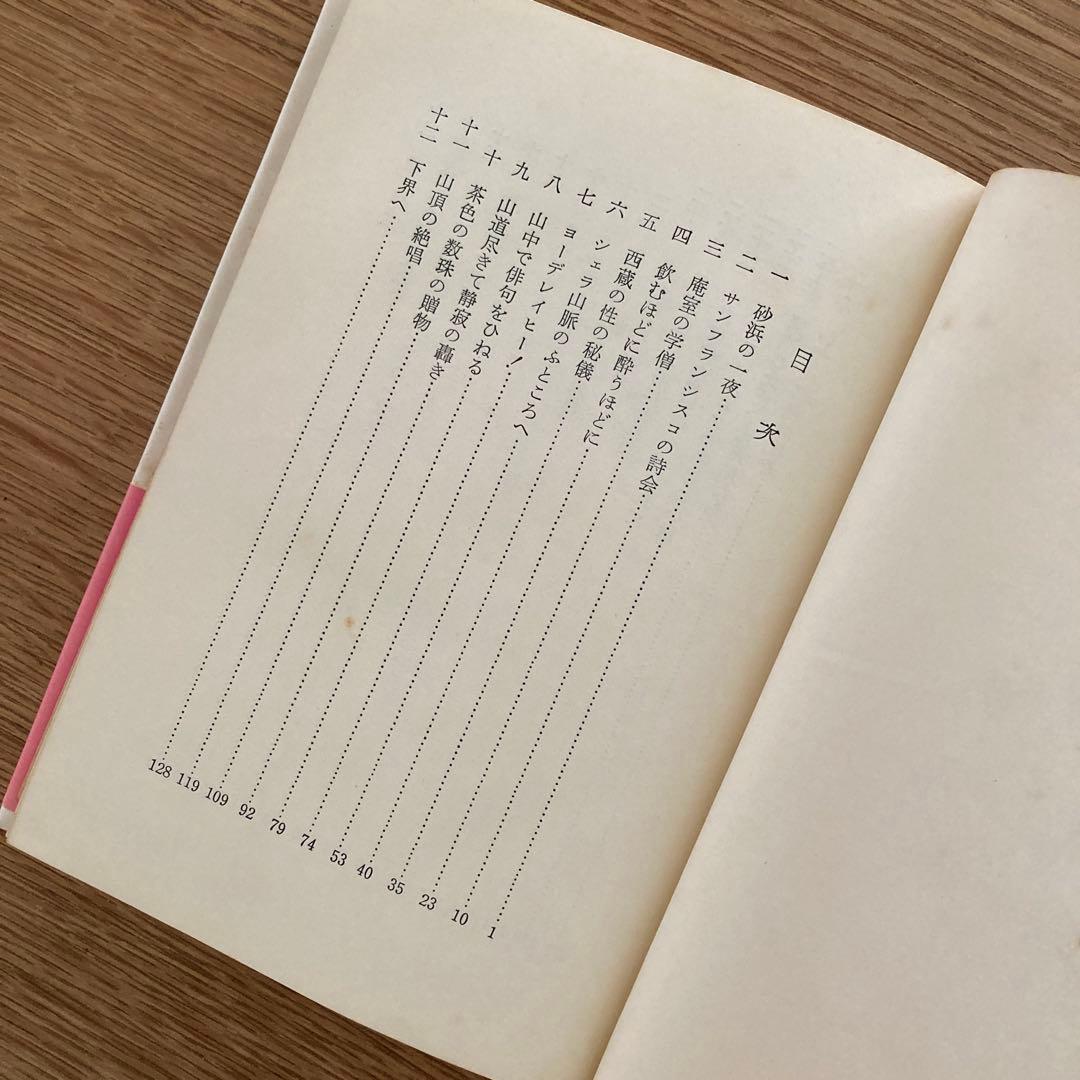 目次
一 砂浜の一夜 1
二 サンフランシスコの詩会 10
三 庵室の学僧 23
四 飲むほどに酔うほどに 35
五 西蔵の性の秘儀 40
六 シェラ山脈のふところへ 53
七 ヨーデレイヒー! 74
八 山中で俳句をひねる 79
九 山道尽きて静寂の轟き 92
十 茶色の数珠の贈物 109
十一 山頂の絶唱 119
十二 下界へ 128